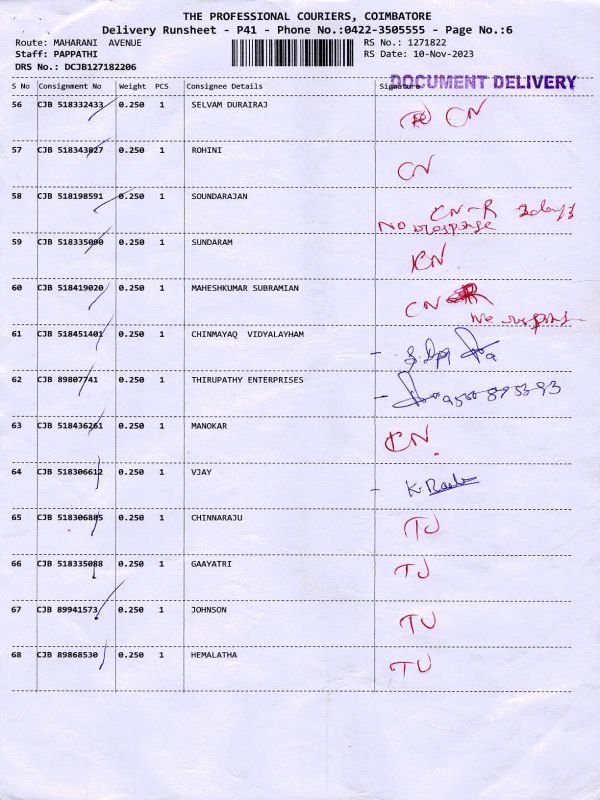 THE PROFESSIONAL COURIERS, COIMBATORE
Delivery Runsheet - P41 - Phone No.:0422-3505555 - Page No.:6
Route: MAHARANI AVENUE RS No.: 1271822
Staff: PAPPATHI RS Date: 10-Nov-2023
DRS No.: DCJB127182206
DOCUMENT DELIVERY
S No Consignment No Weight PCS Consignee Details Signature
56 CJB 518332433 0.250 1 SELVAM DURAIRAJ CN
57 CJB 518343827 0.250 1 ROHINI CN
58 CJB 518198591 0.250 1 SOUNDARAJAN CN-R 2days
No response
59 CJB 518335090 0.250 1 SUNDARAM CN
60 CJB 518419020 0.250 1 MAHESHKUMAR SUBRAMIAN CN
61 CJB 518451401 0.250 1 CHINMAYAQ VIDYALAYHAM
62 CJB 89807741 0.250 1 THIRUPATHY ENTERPRISES
63 CJB 518436261 0.250 1 MANOKAR CN.
64 CJB 518306612 0.250 1 VJAY
65 CJB 518306885 0.250 1 CHINNARAJU TU
66 CJB 518335088 0.250 1 GAAYATRI TU
67 CJB 89941573 0.250 1 JOHNSON TU
68 CJB 89868530 0.250 1 HEMALATHA TU